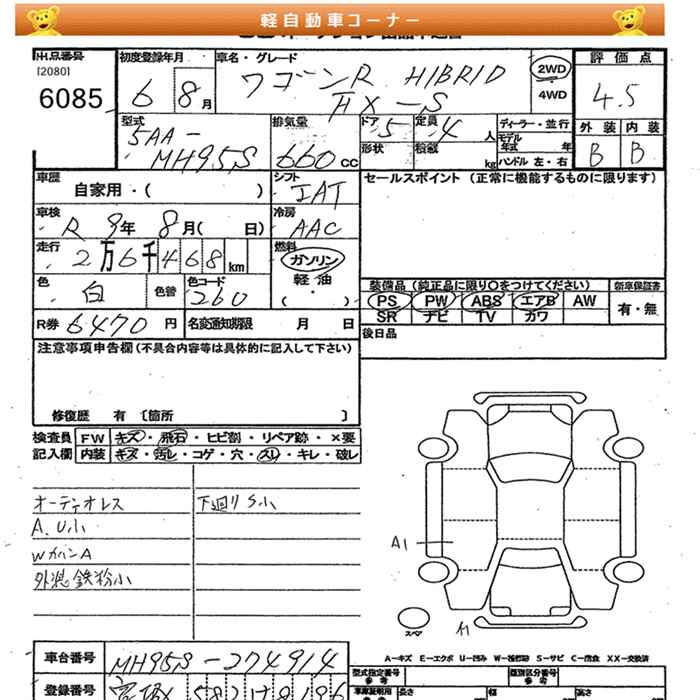 軽自動車コーナー
出品番号 初度登録年月 車名・グレード 評価点
[2080]
6085 6 8月 ワゴンR HIBRID 2WD 4.5
FX-S 4WD
型式 排気量 ドア 定員 ディーラー・並行 外装 内装
5AA- 5 4人 モデル年式 年 B B
MH95S 660cc 形状 積載 kg ハンドル 左・右
車歴 シフト セールスポイント (正常に機能するものに限ります)
自家用・( ) IAT
車検 冷房
R 9年 8月( 日) AAC
走行 燃料
2万6千468km ガソリン
軽油
色 色替 色コード ・( )
白 260
装備品 (純正品に限り○をつけてください) 新車保証書
PS PW ABS エアB AW 有・無
SR ナビ TV カワ
R券 6470円 名変通知期限 月 日 後日品
注意事項申告欄 (不具合内容等は具体的に記入して下さい)
修復歴 有 〔箇所 〕
検査員 FW キズ・飛石・ヒビ割・リペア跡・×要
記入欄 内装 キズ・汚レ・コゲ・穴・スレ・キレ・破レ
オーディオレス 下廻りS小
A.U小
WカバンA
外装鉄粉小
A1
スペア
車台番号 MH95S-274914
A-キズ E-エクボ U-凹み S-サビ C-腐食 XX-交換済
型式指定番号 類別区分番号
登録番号
車庫証明用参考 長さ 幅 高さ